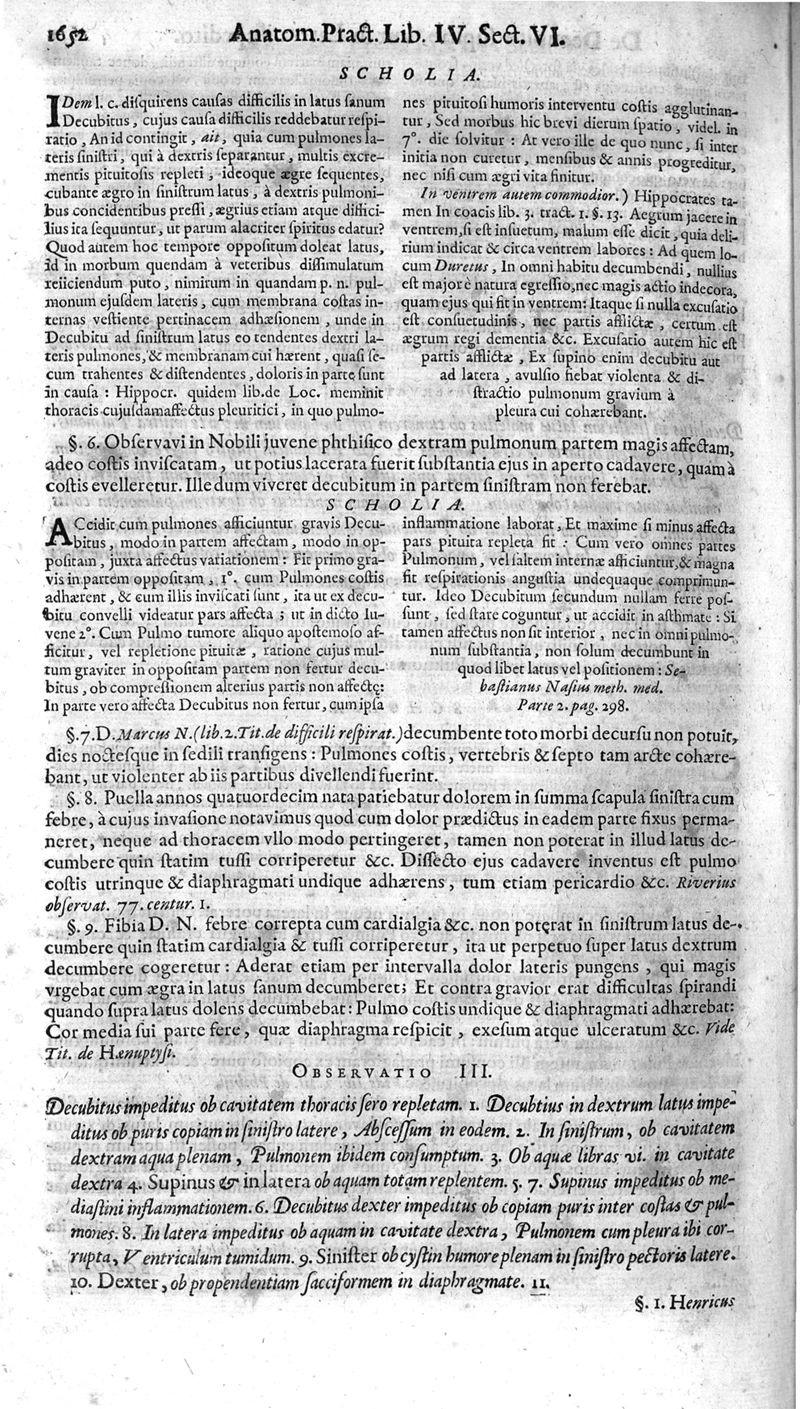 1652 Anatom. Pract. Lib. IV. Sect. VI.
SCHOLIA.
IDem l. c. diſquirens cauſas difficilis in latus ſanum
Decubitus, cujus cauſa difficilis reddebatur reſpi-
ratio, An id contingit, ait, quia cum pulmones la-
teris ſiniſtri, qui à dextris ſeparantur, multis excre-
mentis pituitoſis repleti; ideoque ægre ſequentes,
cubante ægro in ſiniſtrum latus, à dextris pulmoni-
bus concidentibus preſſi, ægrius etiam atque diffici-
lius ita ſequuntur, ut parum alacriter ſpiritus edatur?
Quod autem hoc tempore oppoſitum doleat latus,
id in morbum quendam à veteribus diſſimulatum
reiiciendum puto, nimirum in quandam p. n. pul-
monum ejuſdem lateris, cum membrana coſtas in-
ternas veſtiente pertinacem adhæſionem, unde in
Decubitu ad ſiniſtrum latus eo tendentes dextri la-
teris pulmones, & membranam cui hærent, quaſi ſe-
cum trahentes & diſtendentes, doloris in parte ſunt
in cauſa: Hippocr. quidem lib. de Loc. meminit
thoracis cujuſdam affectus pleuritici, in quo pulmo-
nes pituitoſi humoris interventu coſtis agglutinan-
tur, Sed morbus hic brevi dierum ſpatio, videl. in
7°. die ſolvitur: At vero ille de quo nunc, ſi inter
initia non curetur, menſibus & annis progreditur,
nec niſi cum ægri vita finitur.
In ventrem autem commodior.) Hippocrates ta-
men In coacis lib. 3. tract. 1. §. 13. Aegrum jacere in
ventrem, ſi eſt inſuetum, malum eſſe dicit, quia deli-
rium indicat & circa ventrem labores: Ad quem lo-
cum Duretus, In omni habitu decumbendi, nullius
eſt majorè natura egreſſio, nec magis actio indecora,
quam ejus qui fit in ventrem: Itaque ſi nulla excuſatio
eſt conſuetudinis, nec partis afflictæ, certum eſt
ægrum regi dementia &c. Excuſatio autem hic eſt
partis afflictæ, Ex ſupino enim decubitu aut
ad latera, avulſio fiebat violenta & di-
ſtractio pulmonum gravium à
pleura cui cohærebant.
§. 6. Obſervavi in Nobili juvene phthiſico dextram pulmonum partem magis affectam,
adeo coſtis inviſcatam, ut potius lacerata fuerit ſubſtantia ejus in aperto cadavere, quam à
coſtis evelleretur. Ille dum viveret decubitum in partem ſiniſtram non ferebat.
SCHOLIA.
ACcidit cum pulmones afficiuntur gravis Decu-
bitus, modo in partem affectam, modo in op-
poſitam, juxta affectus variationem: Fit primo gra-
vis in partem oppoſitam, 1°. cum Pulmones coſtis
adhærent, & cum illis inviſcati ſunt, ita ut ex decu-
bitu convelli videatur pars affecta; ut in dicto Iu-
vene 2°. Cum Pulmo tumore aliquo apoſtemoſo af-
ficitur, vel repletione pituitæ, ratione cujus mul-
tum graviter in oppoſitam partem non fertur decu-
bitus, ob compreſſionem alterius partis non affectę:
In parte vero affecta Decubitus non fertur, cum ipſa
inflammatione laborat, Et maxime ſi minus affecta
pars pituita repleta ſit: Cum vero omnes partes
Pulmonum, vel ſaltem internæ afficiuntur, & magna
fit reſpirationis anguſtia undequaque comprimun-
tur. Ideo Decubitum ſecundum nullam ferre poſ-
ſunt, ſed ſtare coguntur, ut accidit in aſthmate: Si
tamen affectus non ſit interior, nec in omni pulmo-
num ſubſtantia, non ſolum decumbunt in
quod libet latus vel poſitionem: Se-
baſtianus Naſius meth. med.
Parte 2. pag. 298.
§. 7. D. Marcus N. (lib. 2. Tit. de difficili reſpirat.) decumbente toto morbi decurſu non potuit,
dies nocteſque in ſedili tranſigens: Pulmones coſtis, vertebris & ſepto tam arcte cohære-
bant, ut violenter ab iis partibus divellendi fuerint.
§. 8. Puella annos quatuordecim nata patiebatur dolorem in ſumma ſcapula ſiniſtra cum
febre, à cujus invaſione notavimus quod cum dolor prædictus in eadem parte fixus perma-
neret, neque ad thoracem vllo modo pertingeret, tamen non poterat in illud latus de-
cumbere quin ſtatim tuſſi corriperetur &c. Diſſecto ejus cadavere inventus eſt pulmo
coſtis utrinque & diaphragmati undique adhærens, tum etiam pericardio &c. Riverius
obſervat. 77. centur. 1.
§. 9. Fibia D. N. febre correpta cum cardialgia &c. non poterat in ſiniſtrum latus de-
cumbere quin ſtatim cardialgia & tuſſi corriperetur, ita ut perpetuo ſuper latus dextrum
decumbere cogeretur: Aderat etiam per intervalla dolor lateris pungens, qui magis
vrgebat cum ægra in latus ſanum decumberet; Et contra gravior erat difficultas ſpirandi
quando ſupra latus dolens decumbebat: Pulmo coſtis undique & diaphragmati adhærebat:
Cor media ſui parte fere, quæ diaphragma reſpicit, exeſum atque ulceratum &c. Vide
Tit. de Hænuptyſi.
OBSERVATIO III.
Decubitus impeditus ob cavitatem thoracis ſero repletam. 1. Decubtius in dextrum latus impe-
ditus ob puris copiam in ſiniſtro latere, Abſceſſum in eodem. 2. In ſiniſtrum, ob cavitatem
dextram aqua plenam, Pulmonem ibidem conſumptum. 3. Ob aquæ libras vi. in cavitate
dextra 4. Supinus & in latera ob aquam totam replentem. 5. 7. Supinus impeditus ob me-
diaſtini inflammationem. 6. Decubitus dexter impeditus ob copiam puris inter coſtas & pul-
mones. 8. In latera impeditus ob aquam in cavitate dextra, Pulmonem cum pleura ibi cor-
rupta, Ventriculum tumidum. 9. Siniſter ob cyſtin humore plenam in ſiniſtro pectoris latere.
10. Dexter, ob propendentiam ſacciformem in diaphragmate. 11.
§. 1. Henricus